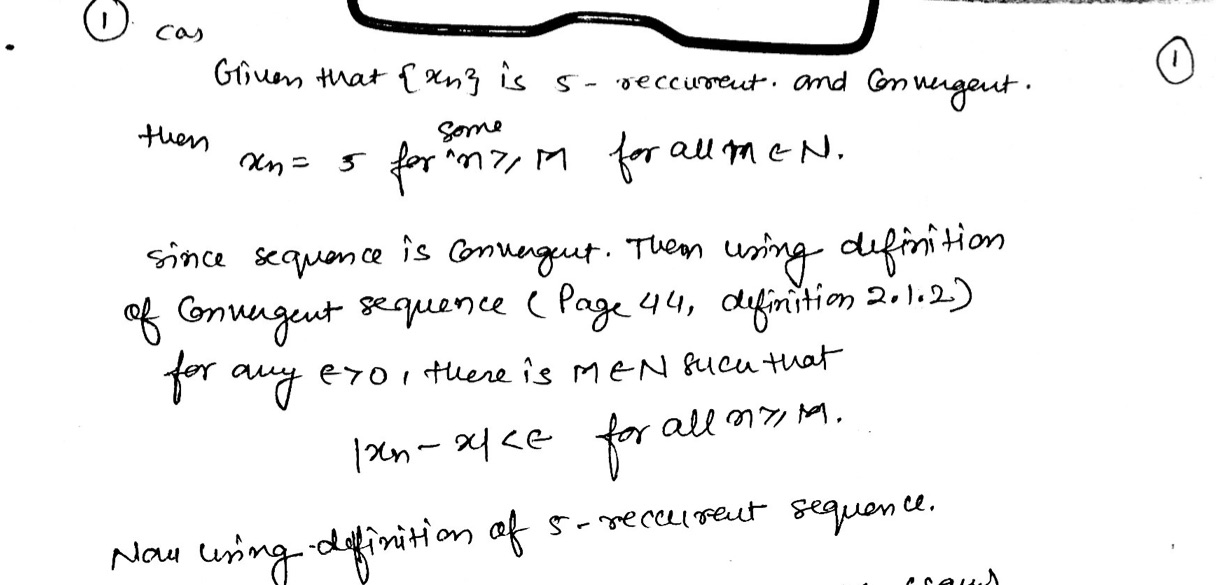 ① cas ①
Given that {xn} is 5-reccurent. and Convergent.
then xn = 5 for some n ≥ M for all M ∈ N.
since sequence is Convergent. Then using definition
of Convergent sequence (Page 44, definition 2.1.2)
for any ϵ>0, there is M ∈ N such that
|xn - x| < ϵ for all n ≥ M.
Now using definition of 5-reccurent sequence.